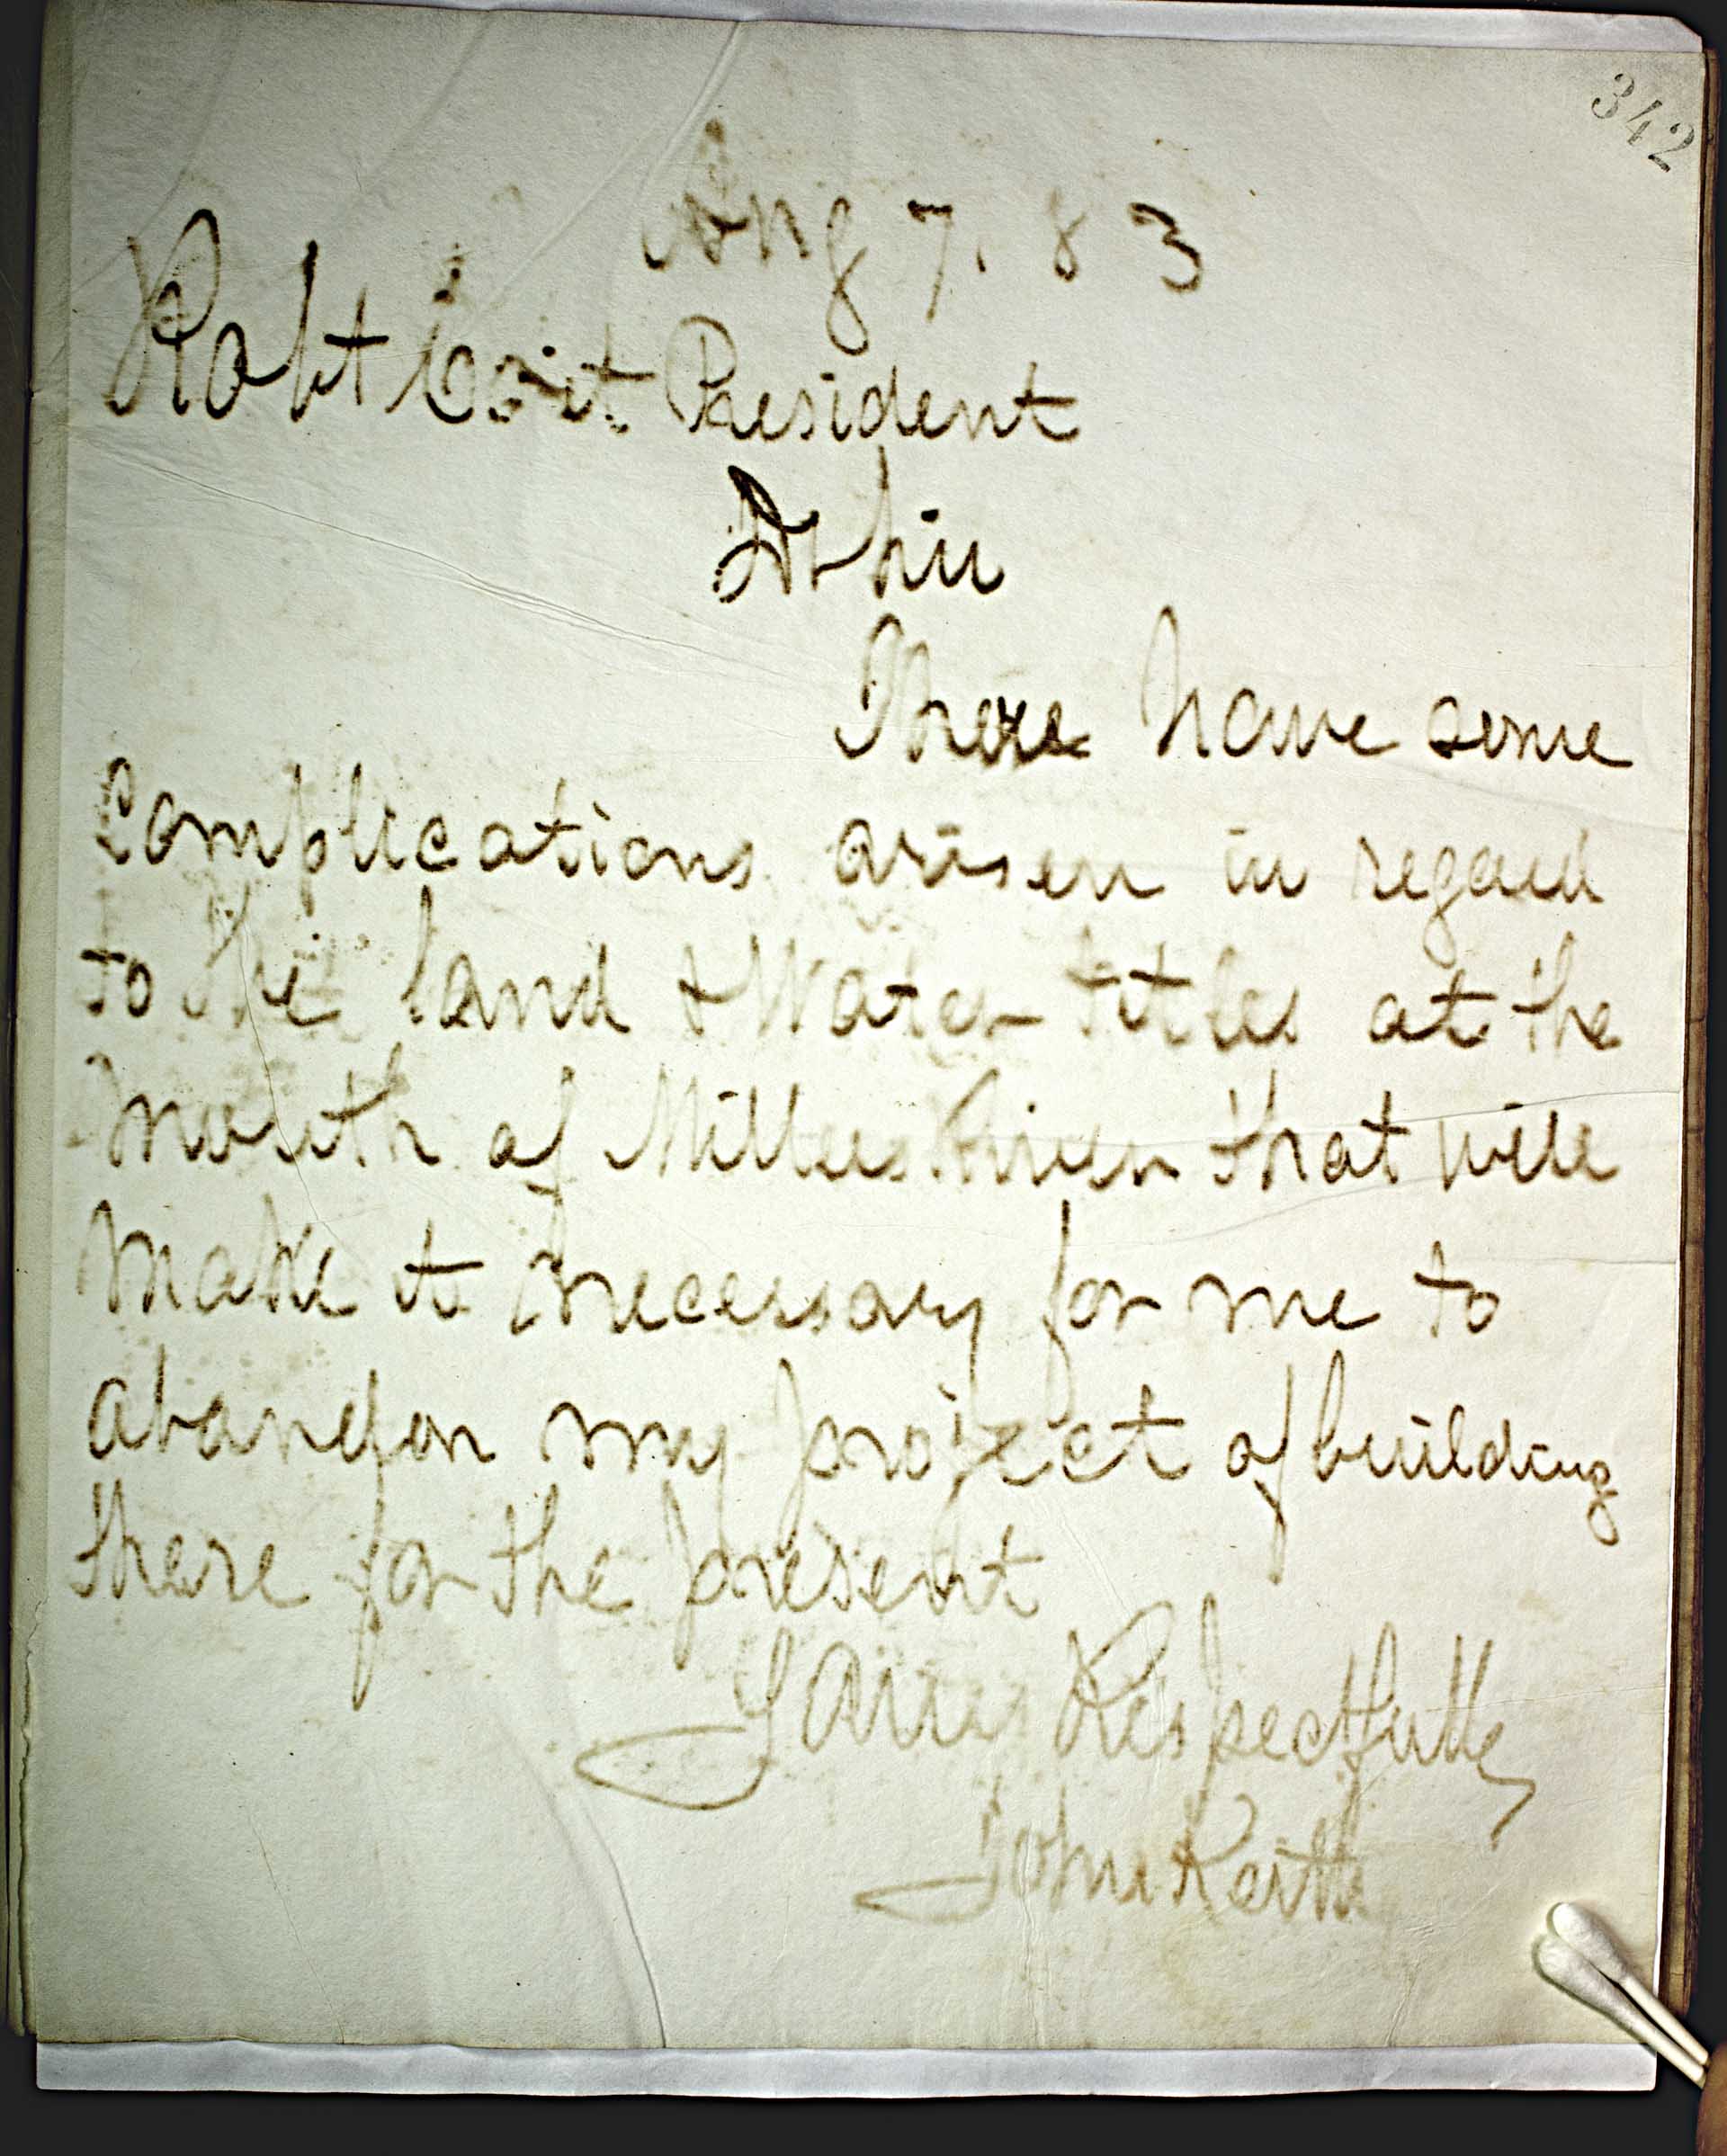 342
Aug 7. 83
Robt Coit President
Dr Sir
There have some
Complications arisen in regard
to the land & Water titles at the
mouth of Millers River that will
make it necessary for me to
abandon my project of building
there for the present
Yours Respectfully
John Keith